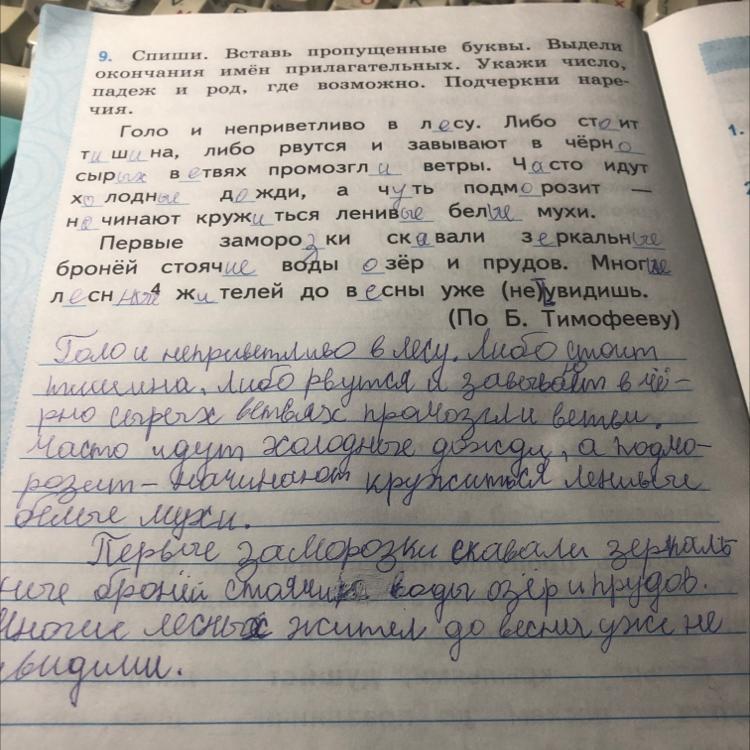 9. Спиши. Вставь пропущенные буквы. Выдели
окончания имён прилагательных. Укажи число,
падеж и род, где возможно. Подчеркни наре-
чия.
Голо и неприветливо в лесу. Либо стоит
тишина, либо рвутся и завывают в чёрно
сырых ветвях промозгли ветры. Часто идут
холодные дожди, а чуть подморозит —
начинают кружиться ленивые белые мухи.
Первые заморозки скавали зеркальные
бронёй стоячие воды озёр и прудов. Многие
лесных жителей до весны уже (не)увидишь.
(По Б. Тимофееву)
Голо и неприветливо в лесу. Либо стоит
тишина, либо рвутся и завывают в чё-
рно сырых ветвях промозгли ветви.
Часто идут холодные дожди, а подмо-
розит – начинают кружиться ленивые
белые мухи.
Первые заморозки скавали зеркаль
ные бронёй воды озёр и прудов.
Многие лесных жител до весны уже не
видими.
1.